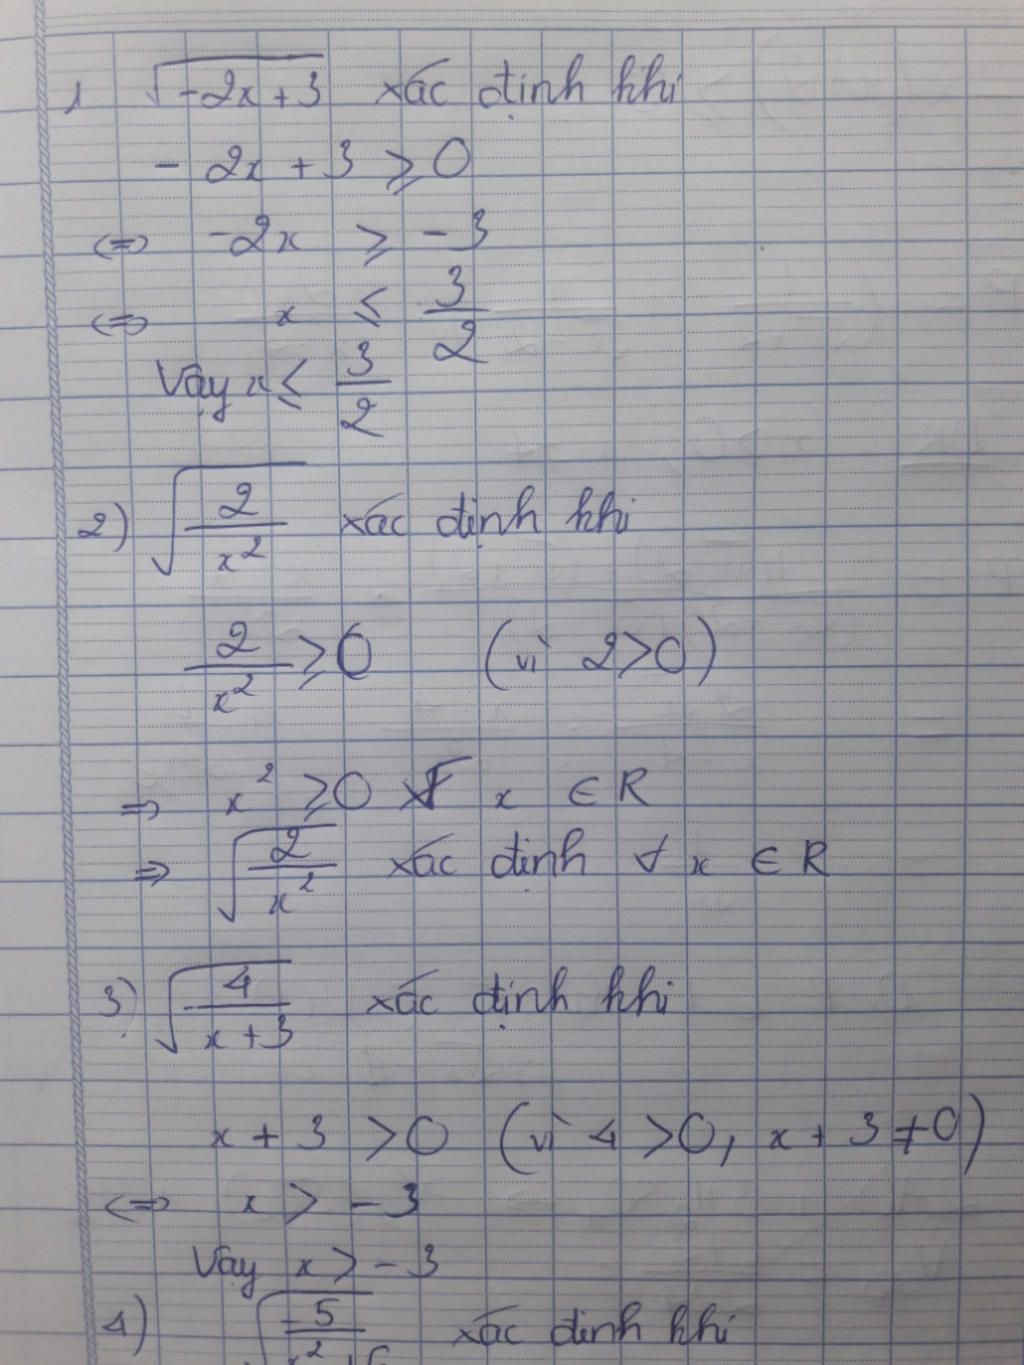 1 √(-2x+3) xác định khi
- 2x + 3 ⩾ 0
⇔ -2x ⩾ -3
⇔ x ≤ 3/2
Vậy x ≤ 3/2
2) √(2/x²) xác định khi
2/x² ⩾ 0 (vì 2>0)
⇒ x² ⩾ 0 x ∈ R
⇒ √(2/x²) xác định ∀ x ∈ R
3) √(4/(x+3)) xác định khi
x + 3 > 0 (vì 4 > 0, x + 3 ≠ 0)
⇔ x > -3
Vay x > -3
4) xác định khi